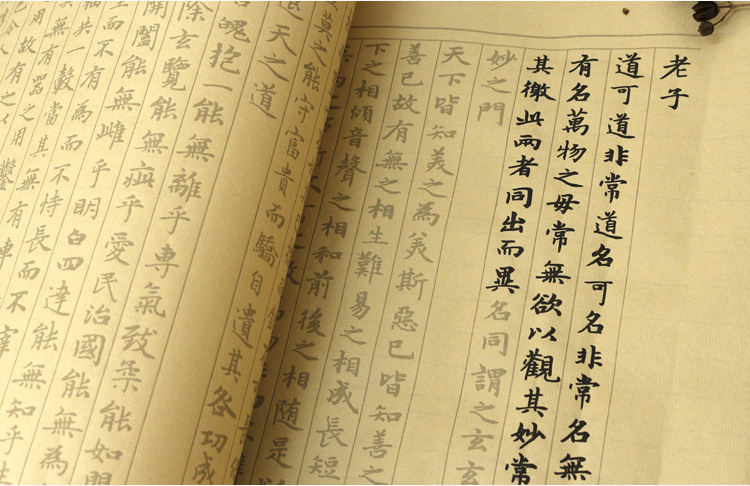 老子
道可道非常道名可名非常名無
有名萬物之毋常無欲以觀其妙常
其徼此兩者同出而異名同謂之玄玄
妙之門
天下皆知美之為美斯惡已皆知善之
善已故有無之相生難易之相成長短
下之相傾音聲之相和前後之相随是
莫之能守富貴而驕自遺其咎功成
退天之道
魄抱一能無離乎專氣致柔能如
除玄覽能無疵乎愛民治國能無為
開闔能無雌乎明白四達能無知乎
而不有為而不恃長而不宰
共一轂當其無有車